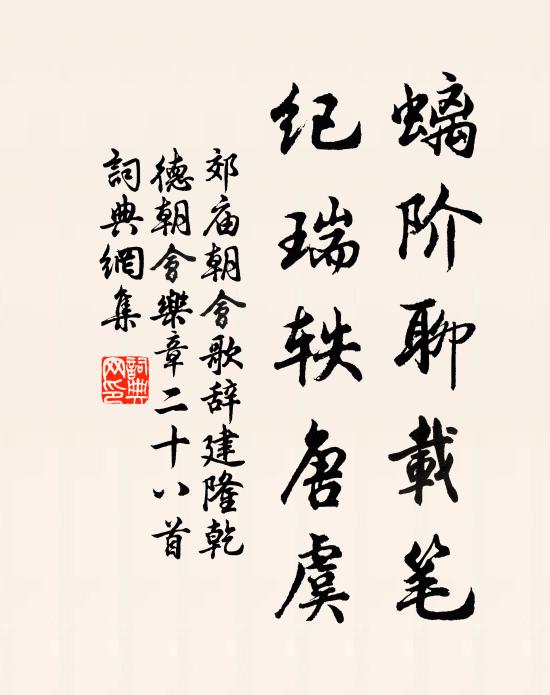 螭阶聊載笔
纪瑞轶唐虞
郊庙朝會歌辞建隆乾
德朝會樂章二十八首
詞典網集
詞典
网印